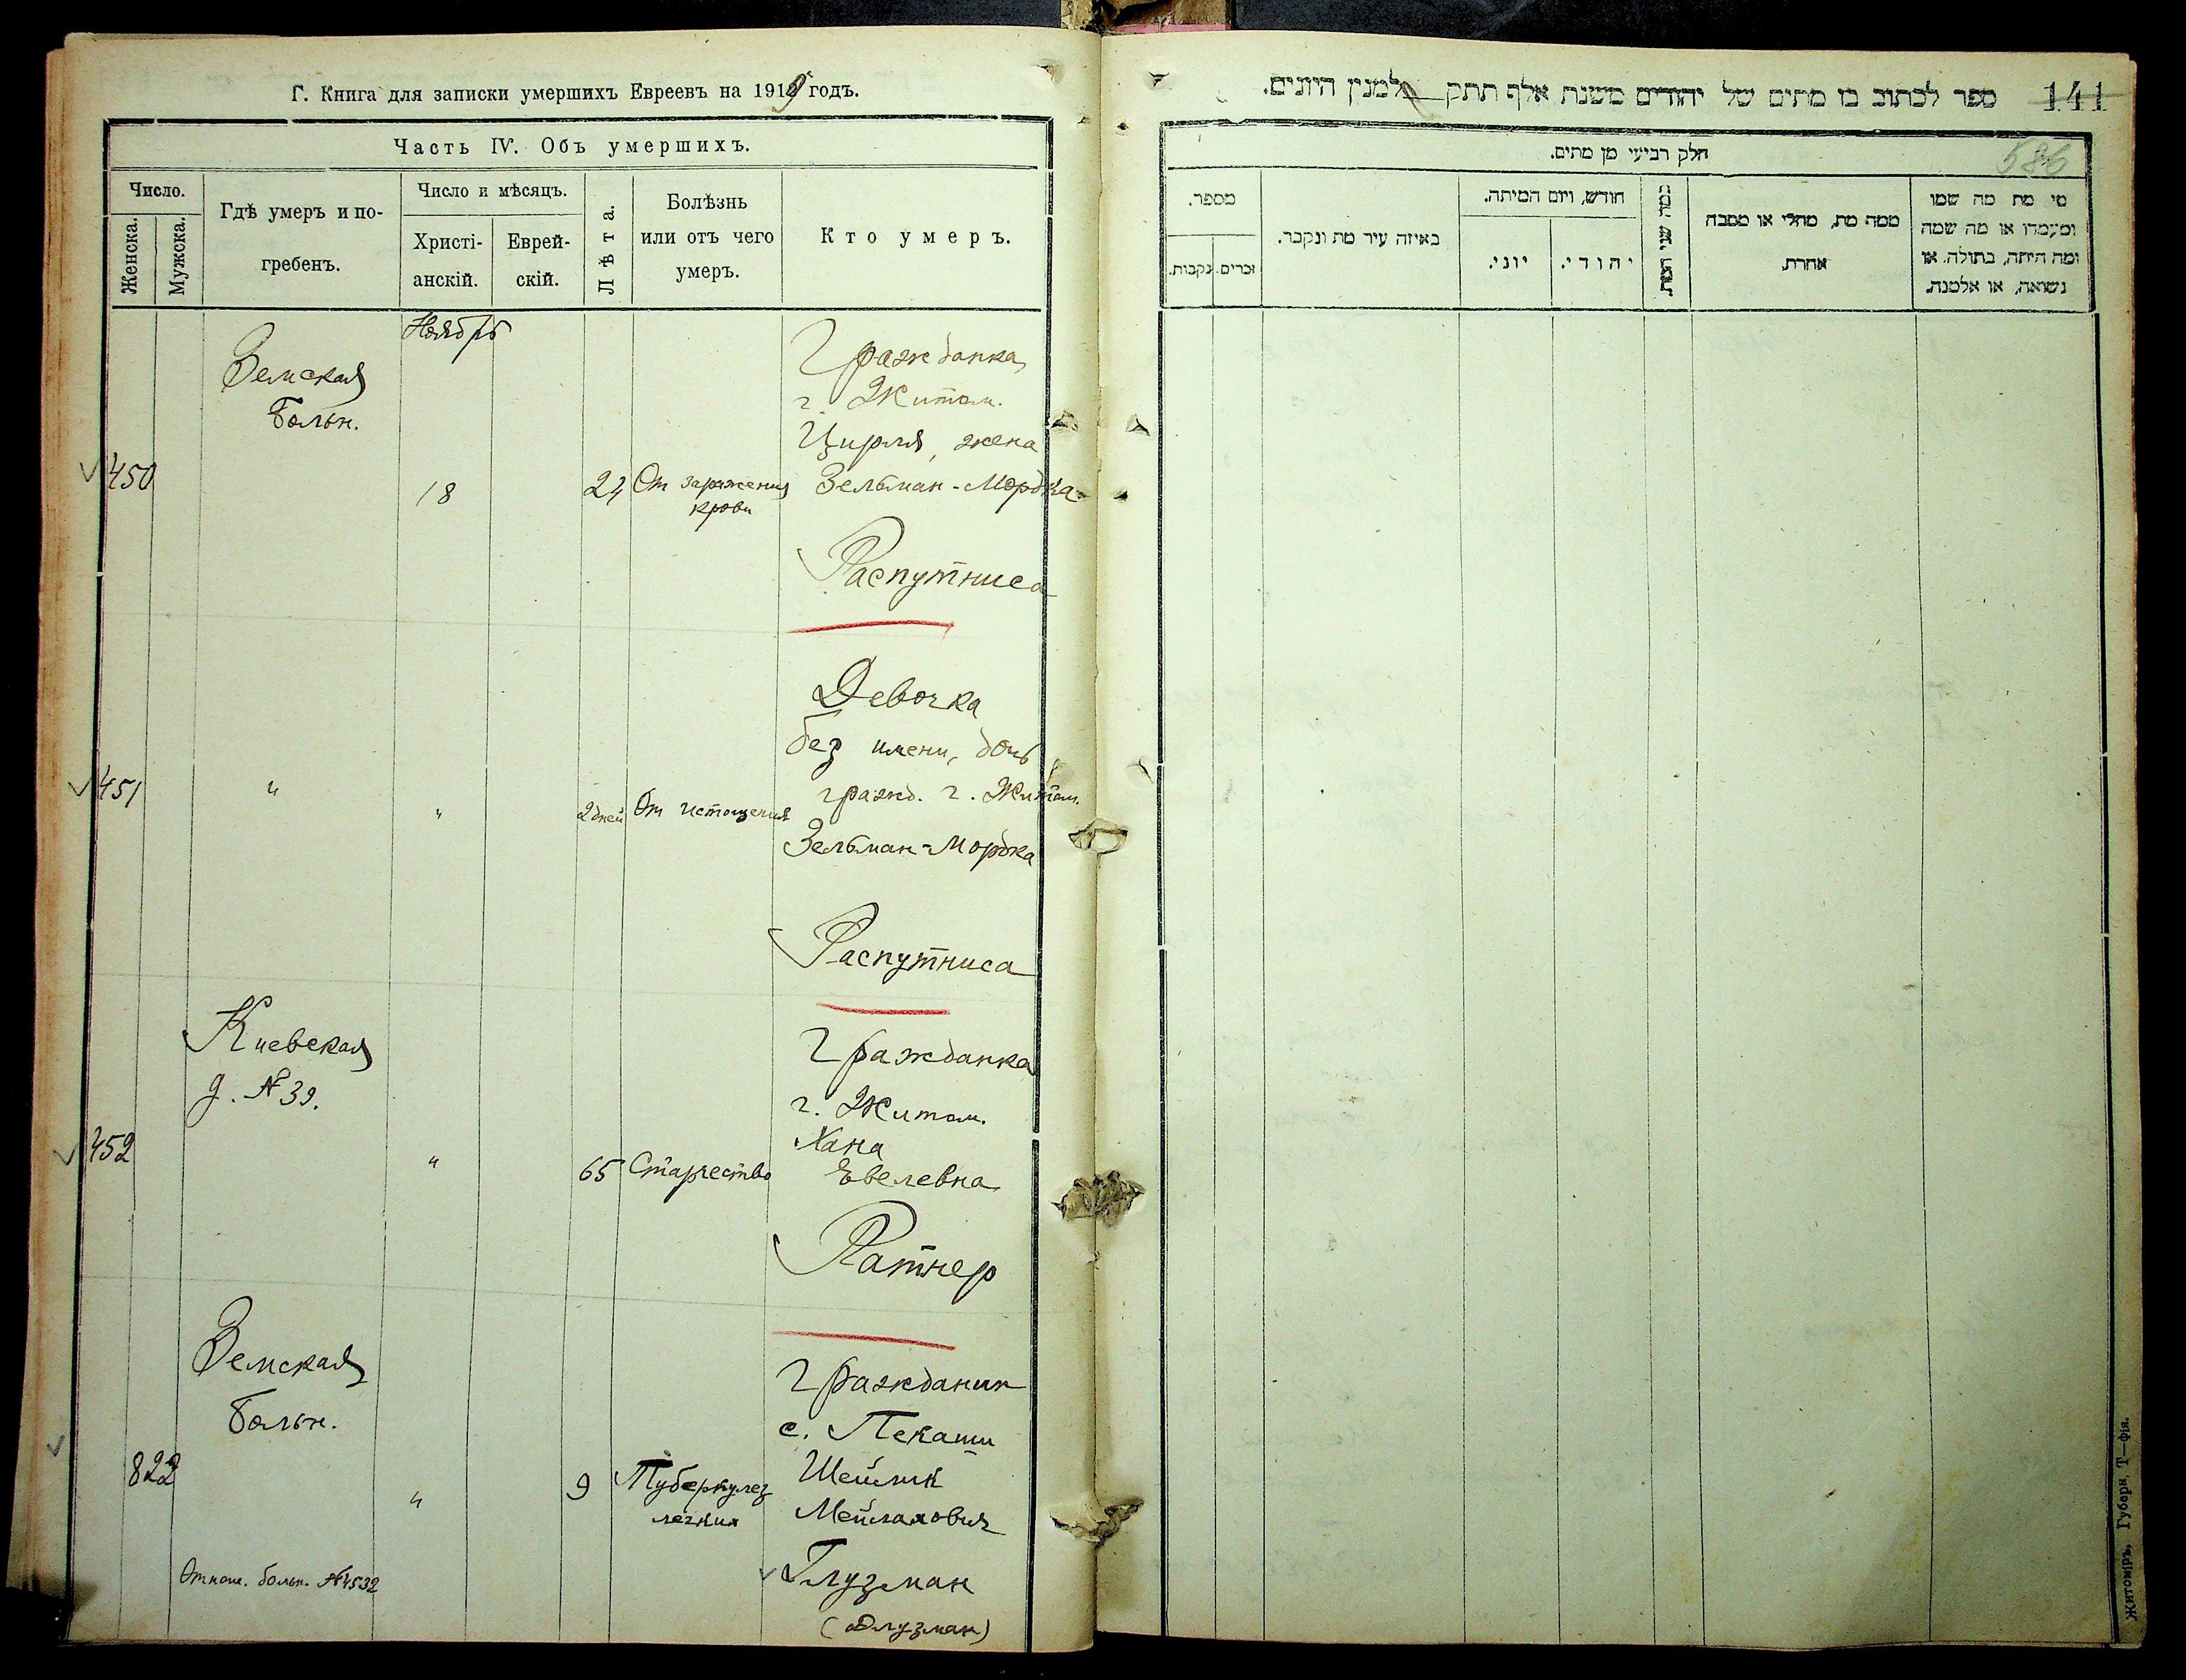 Г. Книга для записки умершихъ Евреевъ на 1919 годъ.
Часть IV. Объ умершихъ.
Число.
Женска.
Мужска.
Гдѣ умеръ и по-
гребенъ.
Число и мѣсяцъ.
Христі-
анскій.
Еврей-
скій.
Лѣта.
Болѣзнь
или отъ чего
умеръ.
Кто умеръ.
Ноябрь
Земская
Больн.
450
18
24
От заражения
крови
Гражданка
г. Житом.
Цирля, жена
Зельман-Мордка
Распутниса
451
"
"
2 дней
От истощения
Девочка
без имени, дочь
гражд. г. Житом.
Зельман-Мордка
Распутниса
Киевская
д. № 39.
452
"
65
Старчество
Гражданка
г. Житом.
Хана
Евелевна
Ратнер
Земская
Больн.
822
"
9
Туберкулез
легких
Гражданин
с. Пекащи
Шейлик
Мейлахович
Глузман
(Длузман)
Отнош. больн. № 4532
ספר לכתוב בו מתים של יהודים משנת אלף תתק למנין היונים.
141
586
חלק רביעי מן מתים.
מי מת מה שמו
ומעמדו או מה שמה
ומה היתה, בתולה או
נשואה, או אלמנה.
ממה מת, מחלי או מסבה
אחרת.
כמה שני המת.
חודש, ויום המיתה.
יהודי.
יוני.
באיזה עיר מת ונקבר.
מספר.
זכרים.
נקבות.
Житоміръ, Губерн. Т—фія.